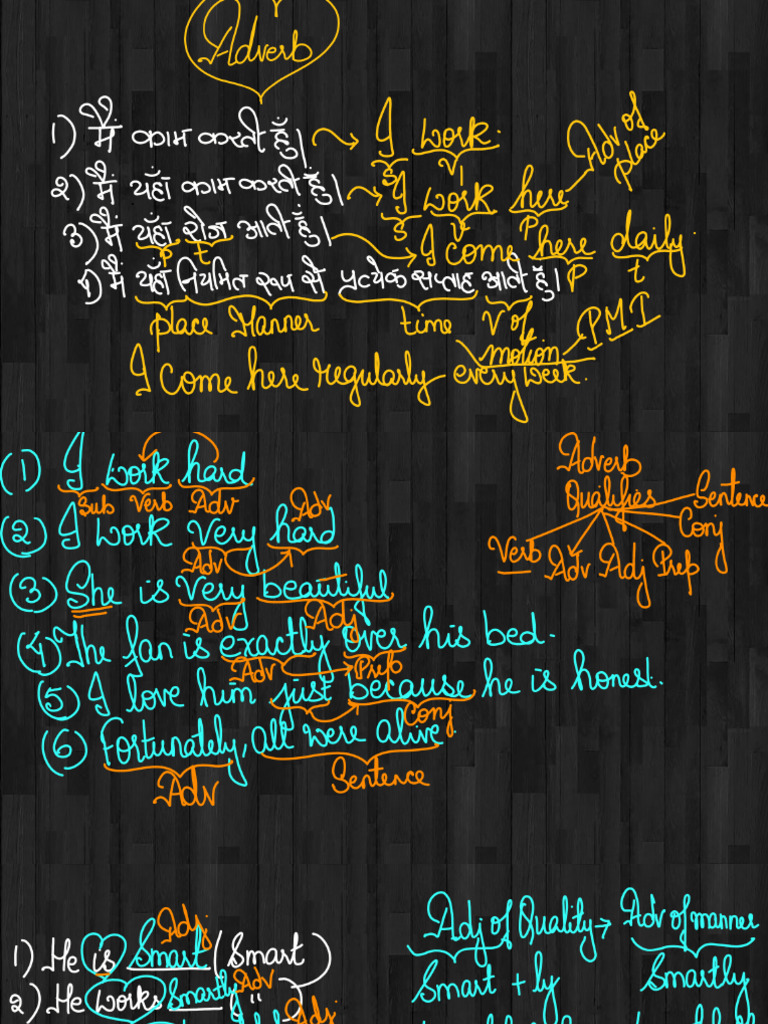 Adverb
1) मैं काम करती हूँ। → I work.
S V1
Adv of place
2) मैं यहाँ काम करती हूँ। → I work here
S V P
3) मैं यहाँ रोज आती हूँ। → I come here daily.
P t P t
4) मैं यहाँ नियमित रूप से प्रत्येक सप्ताह आती हूँ।
place Manner time V of motion PMT
I come here regularly every week.
(1) I work hard
Sub Verb Adv
Adv
(2) I work very hard
Adv
(3) She is very beautiful
Adv Adj
(4) The fan is exactly over his bed.
Adv Prep
(5) I love him just because he is honest.
Conj
(6) Fortunately, all were alive.
Adv Sentence
Adverb
Qualifies
Sentence
Conj
Verb Adv Adj Prep
Adj
1) He is Smart (Smart)
Adv
2) He works Smartly ( " )
Adj
Adj of Quality → Adv of manner
Smart + ly Smartly